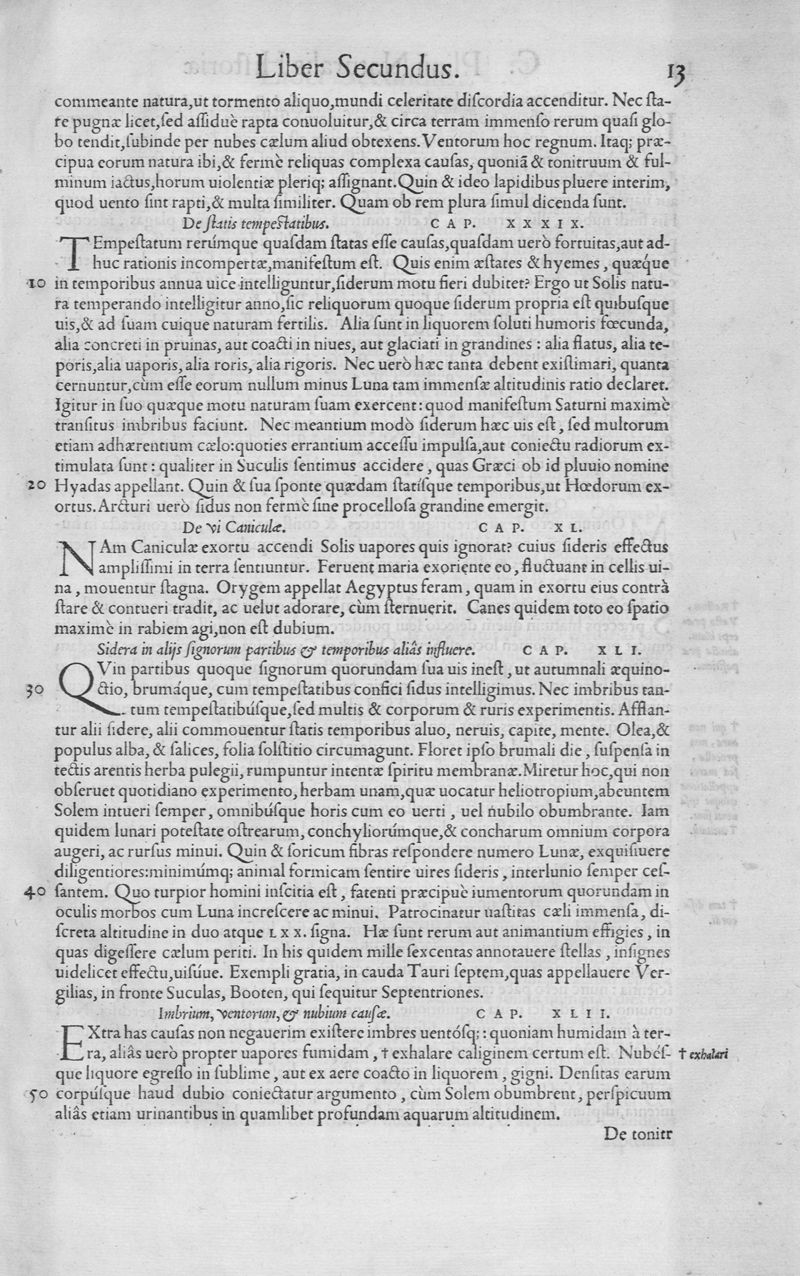 Liber Secundus. 13
commeante natura,ut tormento aliquo,mundi celeritate diſcordia accenditur. Nec ſta-
re pugnæ licet,ſed aſſiduè rapta conuoluitur,& circa terram immenſo rerum quaſi glo-
bo tendit,ſubinde per nubes cælum aliud obtexens.Ventorum hoc regnum. Itaq; præ-
cipua eorum natura ibi,& fermè reliquas complexa cauſas, quoniã & tonitruum & ful-
minum iactus,horum uiolentiæ pleriq; aſſignant.Quin & ideo lapidibus pluere interim,
quod uento ſint rapti,& multa ſimiliter. Quam ob rem plura ſimul dicenda ſunt.
De ſtatis tempeſtatibus. CAP. XXXIX.
TEmpeſtatum rerúmque quaſdam ſtatas eſſe cauſas,quaſdam uerò fortuitas,aut ad-
huc rationis incompertæ,manifeſtum eſt. Quis enim æſtates & hyemes, quæq́ue
10 in temporibus annua uice intelliguntur,ſiderum motu fieri dubitet? Ergo ut Solis natu-
ra temperando intelligitur anno,ſic reliquorum quoque ſiderum propria eſt quibuſque
uis,& ad ſuam cuique naturam fertilis. Alia ſunt in liquorem ſoluti humoris fœcunda,
alia concreti in pruinas, aut coacti in niues, aut glaciati in grandines : alia flatus, alia te-
poris,alia uaporis, alia roris, alia rigoris. Nec uerò hæc tanta debent exiſtimari, quanta
cernuntur,cùm eſſe eorum nullum minus Luna tam immenſæ altitudinis ratio declaret.
Igitur in ſuo quæque motu naturam ſuam exercent:quod manifeſtum Saturni maximè
tranſitus imbribus faciunt. Nec meantium modò ſiderum hæc uis eſt, ſed multorum
etiam adhærentium cælo:quoties errantium acceſſu impulſa,aut coniectu radiorum ex-
timulata ſunt : qualiter in Suculis ſentimus accidere, quas Græci ob id pluuio nomine
20 Hyadas appellant. Quin & ſua ſponte quædam ſtatíſque temporibus,ut Hœdorum ex-
ortus.Arcturi uerò ſidus non fermè ſine procelloſa grandine emergit.
De vi Caniculæ. CAP. XL.
NAm Caniculæ exortu accendi Solis uapores quis ignorat? cuius ſideris effectus
ampliſſimi in terra ſentiuntur. Feruent maria exoriente eo, fluctuant in cellis ui-
na, mouentur ſtagna. Orygem appellat Aegyptus feram, quam in exortu eius contrà
ſtare & contueri tradit, ac uelut adorare, cùm ſternuerit. Canes quidem toto eo ſpatio
maximè in rabiem agi,non eſt dubium.
Sidera in alijs ſignorum partibus & temporibus aliâs influere. CAP. XLI.
QVin partibus quoque ſignorum quorundam ſua uis ineſt, ut autumnali æquino-
30 ctio, brumáque, cum tempeſtatibus confici ſidus intelligimus. Nec imbribus tan-
tum tempeſtatibúſque,ſed multis & corporum & ruris experimentis. Afflan-
tur alii ſidere, alii commouentur ſtatis temporibus aluo, neruis, capite, mente. Olea,&
populus alba, & ſalices, folia ſolſtitio circumagunt. Floret ipſo brumali die, ſuſpenſa in
tectis arentis herba pulegii, rumpuntur intentæ ſpiritu membranæ.Miretur hoc,qui non
obſeruet quotidiano experimento, herbam unam,quæ uocatur heliotropium,abeuntem
Solem intueri ſemper, omnibúſque horis cum eo uerti, uel nubilo obumbrante. Iam
quidem lunari poteſtate oſtrearum, conchyliorúmque,& concharum omnium corpora
augeri, ac rurſus minui. Quin & ſoricum fibras reſpondere numero Lunæ, exquiſiuere
diligentiores:minimúmq; animal formicam ſentire uires ſideris, interlunio ſemper ceſ-
40 ſantem. Quo turpior homini inſcitia eſt, fatenti præcipuè iumentorum quorundam in
oculis morbos cum Luna increſcere ac minui. Patrocinatur uaſtitas cæli immenſa, di-
ſcreta altitudine in duo atque LXX. ſigna. Hæ ſunt rerum aut animantium effigies, in
quas digeſſere cælum periti. In his quidem mille ſexcentas annotauere ſtellas, inſignes
uidelicet effectu,uiſúue. Exempli gratia, in cauda Tauri ſeptem,quas appellauere Ver-
gilias, in fronte Suculas, Booten, qui ſequitur Septentriones.
Imbrium, ventorum, & nubium cauſæ. CAP. XLII.
EXtra has cauſas non negauerim exiſtere imbres uentóſq; : quoniam humidam à ter-
ra, aliâs uerò propter uapores fumidam, † exhalare caliginem certum eſt. Nubéſ- † exhalari
que liquore egreſſo in ſublime, aut ex aere coacto in liquorem, gigni. Denſitas earum
50 corpúſque haud dubio coniectatur argumento, cùm Solem obumbrent, perſpicuum
aliâs etiam urinantibus in quamlibet profundam aquarum altitudinem.
De tonitr